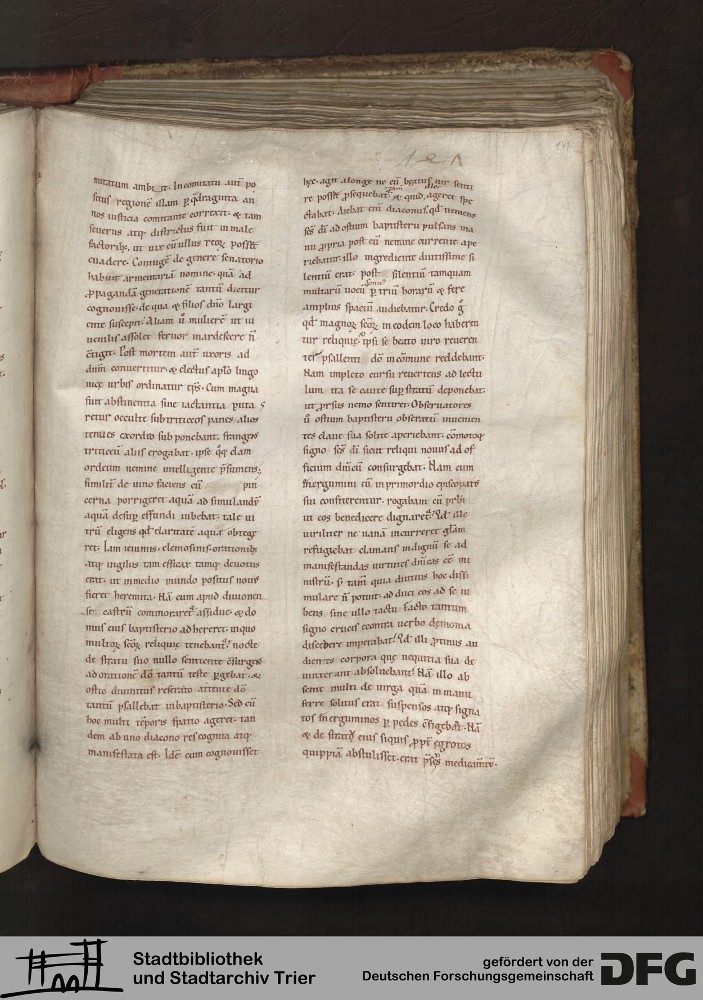 mutatum ambi_it. In comitatu aut̄ po
situs regionē illam ꝑ qͣdraginta an
nos iusticia comitante correxit. & tam
seuerus atq; districtus fuit in male
factorib;, ut uix eū ullus reoꝝ possēt
euadere. Coniugē de genere senatorio
habuit armentariā nomine. quā ad
ꝓpagandā generationē tantū dicitur
cognouisse. de qua & filios dn̄o largi
ente suscepit. Aliam ū mulierē ut iu
uenilis assolet feruor inardescere n̄
ctigit. Post mortem aut̄ uxoris ad
dnm̄ conuertitur. & electus apłō lingo
nice urbis ordinatur ep̄s. Cum magna
fuit abstinentia sine iactantia puta
retur occulte sub triticeos panes alios
tenues ex ordeo sub ponebant. frangēs
triticeū aliis erogabat. ipse qͦq; clam
ordeum nemine intelligente p̄sumens;
similit̄ de uino faciens cū pin
cerna porrigeret aquā. ad simulandū
aquā desup effundi iubebat. tale ui
trū eligens qd̄ claritatē aquae obtege
ret. Iam ieiuniis. elemosinis. orationib;
atq; uigiliis tam efficax tamq; deuotus
erat. ut in medio mundo positus nouus
fieret heremita. Nā cum apud diuionen
se castrū commoraret᷑ assidue. & do
mus eius baptisterio ad hereret. in quo
multoꝝ sc̄oꝝ reliquie tenebant᷑. nocte
de stratu suo nullo sentiente c̄surgēs
ad orationē dō tantū teste ꝑgebat. &
ostio diuinitus reserato attente dō
tantū psallebat in baptisterio. Sed cū
hoc multi tēporis spatio ageret. tan
dem ab uno diacono res cognita atq;
manifestata est. Idē cum cognouisset
hec. agit a longe ne eū beatus uir senti
re possēt ꝓsequebat᷑. & quid ageret spe
ctabat. Aiebat eni diaconus. qd ueniens
sc̄s dī ad ostium baptisterii pulsans ma
nu ꝓpria post eū nemine currente ape
riebatur. illo ingrediente diutissime si
lentiū erat. post silentiū tamquam
multarū uocū ꝑ triū horarū & fere
amplius spaciū audiebatur. Credo g̊
qd magnoꝝ sc̄oꝝ in eodem loco haberen
tur reliquię. ipsi se beato uiro reueren
tes psallenti dō in cōmune reddebant.
Nam impleto cursu reuertens ad lectu
lum ita se caute suꝑ stratū deponebat.
ut ꝓrsus nemo sentiret. Obseruatores
ū ostium baptisterii obseratū inuenien
tes claue sua solite aperiebant. cōmotoq;
signo sc̄s dī sicut reliqui nouus ad of
ficium dnīcū consurgebat. Nam cum
inergumini eū in primordio episcopatꝰ
sui confiterentur. rogabant eū prb̄i
ut eos benedicere dignaret᷑. Qd ille
uiriliter ne uanā incurreret glām
refugiebat clamans indignū se ad
manifestandas uirtutes dnīcas eē mi
nistrū. Sꝫ tam̄ quia diutius hoc dissi
mulare n̄ potuit. ad duci eos ad se iu
bens sine ullo tactu facto tantum
signo crucis econtra uerbo demonia
discedere imperabat. Qd illi ꝓtinus au
dientes corpora que nequitia sua de
uinxerant absoluebant. Nā illo ab
sente multi de uirga quā in manu
ferre solitus erat suspensos atq; signa
tos inerguminos ꝑ pedes c̄figebat. Nā
& de stratu eius siquis ꝓpt̄ egrotos
quippiā abstulisset. erat p̄sens medicam̄tū.
147
Stadtbibliothek
und Stadtarchiv Trier
gefördert von der
Deutschen Forschungsgemeinschaft
DFG